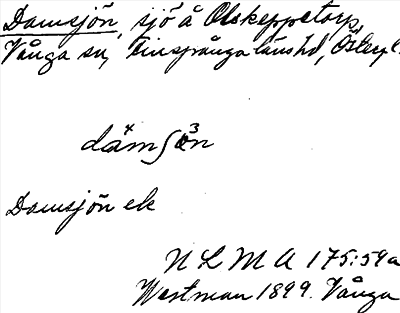 Damsjön, sjö å Olskeppetorp,
Vånga sn, Finspånga länshd, Östergl.
Damsjön ek
N L M A 175:59a
Westman 1899. Vånga